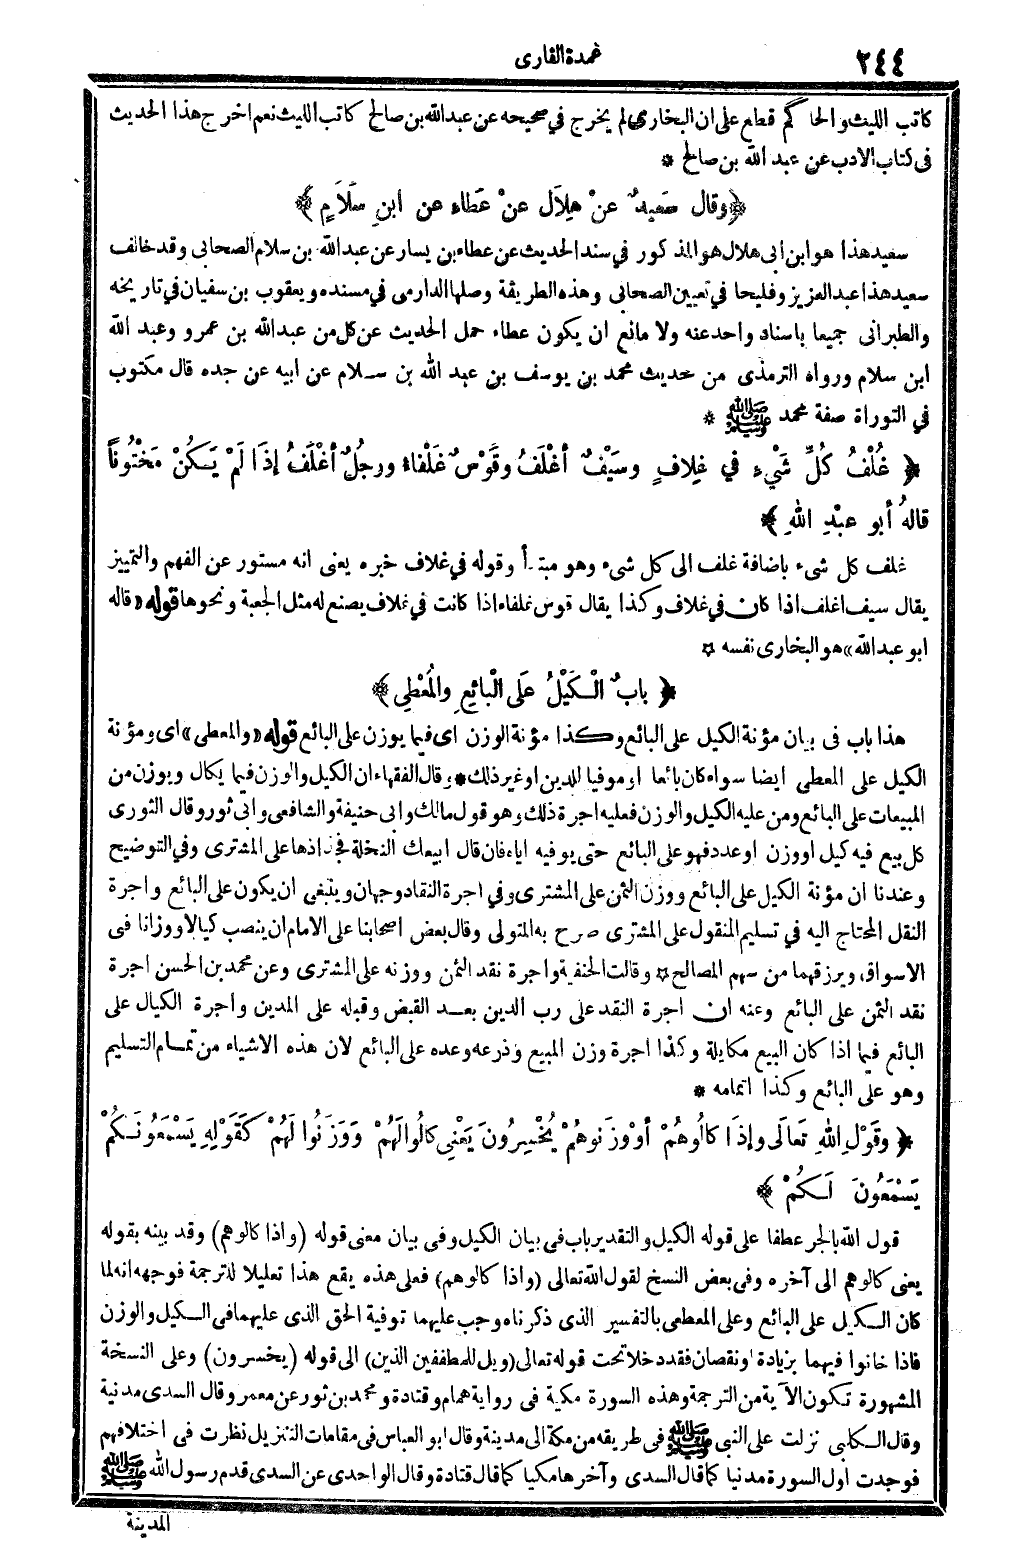 ٢٤٤
عمدة القارى
كاتب الليث والحاكم قطع على ان البخارى لم يخرج فى صحيحه عن عبدالله بن صالح كاتب الليث نعم اخرج هذا الحديث
فى كتاب الادب عن عبد الله بن صالح *
﴿ وقال سَعِيدٌ عنْ هِلاَلٍ عنْ عَطَاءٍ عن ابنِ سَلاَمٍ ﴾
سعيد هذا هو ابن ابى هلال هو المذكور فى سند الحديث عن عطاء بن يسار عن عبدالله بن سلام الصحابى وقد خالف
سعيد هذا عبدالعزيز وفليحا فى تعيين الصحابى وهذه الطريقة وصلها الدارمى فى مسنده ويعقوب بن سفيان فى تاريخه
والطبرانى جميعا باسناد واحد عنه ولا مانع ان يكون عطاء حمل الحديث عن كل من عبدالله بن عمرو وعبد الله
ابن سلام ورواه الترمذى من حديث محمد بن يوسف بن عبد الله بن سلام عن ابيه عن جده قال مكتوب
فى التوراة صفة محمد ﷺ *
﴿ غُلْفُ كُلِّ شَيْءٍ في غِلافٍ وسَيْفٌ أغْلَفُ وقَوْسٌ غَلْفاءُ ورجُلٌ أغْلَفُ إذَا لَمْ يَكُنْ مَخْتُوناً
قالهُ أبو عبْدِ اللهِ ﴾
غلف كل شىء باضافة غلف الى كل شىء وهو مبتدأ وقوله فى غلاف خبره يعنى انه مستور عن الفهم والتمييز
يقال سيف اغلف اذا كان فى غلاف وكذا يقال قوس غلفاء اذا كانت فى غلاف يصنع له مثل الجعبة ونحوها قوله «قاله
ابو عبدالله» هو البخارى نفسه *
﴿ بابُ الْكَيْلُ عَلَى الْبائِعِ والمُعْطِي ﴾
هذا باب فى بيان مؤنة الكيل على البائع وكذا مؤنة الوزن اى فيما يوزن على البائع قوله «والمعطى» اى ومؤنة
الكيل على المعطى ايضا سواء كان بائعا او موفيا للدين او غير ذلك * وقال الفقهاء ان الكيل والوزن فيما يكال ويوزن من
المبيعات على البائع ومن عليه الكيل والوزن فعليه اجرة ذلك وهو قول مالك وابى حنيفة والشافعى وابى ثور وقال الثورى
كل بيع فيه كيل او وزن او عدد فهو على البائع حتى يوفيه اياه فان قال ابيعك النخلة فجذاذها على المشترى وفى التوضيح
وعندنا ان مؤنة الكيل على البائع ووزن الثمن على المشترى وفى اجرة النقاد وجهان وينبغى ان يكون على البائع واجرة
النقل المحتاج اليه فى تسليم المنقول على المشترى صرح به المتولى وقال بعض اصحابنا على الامام ان ينصب كيالا ووزانا فى
الاسواق ويرزقهما من سهم المصالح * وقالت الحنفية واجرة نقد الثمن ووزنه على المشترى وعن محمد بن الحسن اجرة
نقد الثمن على البائع وعنه ان اجرة النقد على رب الدين بعد القبض وقبله على المدين واجرة الكيال على
البائع فيما اذا كان البيع مكايلة وكذا اجرة وزن المبيع وذرعه وعده على البائع لان هذه الاشياء من تمام التسليم
وهو على البائع وكذا اتمامه *
﴿ وقَوْلِ اللهِ تَعَالَى وإذَا كالُوهُمْ أوْ وَزَنوهُمْ يُخْسِرُونَ يَعْنِي كالُوا لَهُمْ وَوَزَنُوا لَهُمْ كَقَوْلِهِ يَسْمَعُونَكُمْ
يَسْمَعُونَ لَكُمْ ﴾
قول الله بالجر عطفا على قوله الكيل والتقدير باب فى بيان الكيل وفى بيان معنى قوله (واذا كالوهم) وقد بينه بقوله
يعنى كالوهم الى آخره وفى بعض النسخ لقول الله تعالى (واذا كالوهم) فعلى هذه يقع هذا تعليلا للترجمة فوجهه انه لما
كان الكيل على البائع وعلى المعطى بالتفسير الذى ذكرناه وجب عليهما توفية الحق الذى عليهما فى الكيل والوزن
فاذا خانوا فيهما بزيادة او نقصان فقد دخلا تحت قوله تعالى (ويل للمطففين الذين) الى قوله (يخسرون) وعلى النسخة
المشهورة تكون الآية من الترجمة وهذه السورة مكية فى رواية همام وقتادة ومحمد بن ثور عن معمر وقال السدى مدنية
وقال الكلبى نزلت على النبى ﷺ فى طريقه من مكة الى مدينة وقال ابو العباس فى مقامات التنزيل نظرت فى اختلافهم
فوجدت اول السورة مدنيا كما قال السدى وآخرها مكيا كما قال قتادة وقال الواحدى عن السدى قدم رسول الله ﷺ
المدينة